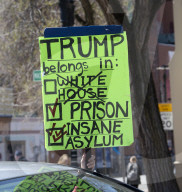 TRUMP
belongs in:
WHITE
HOUSE
PRISON
INSANE
ASYLUM